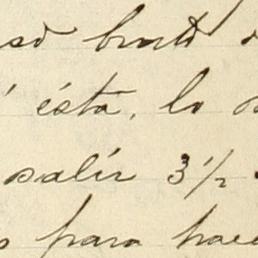 so bruto
ésta, lo
salir 3 1/2
para hace